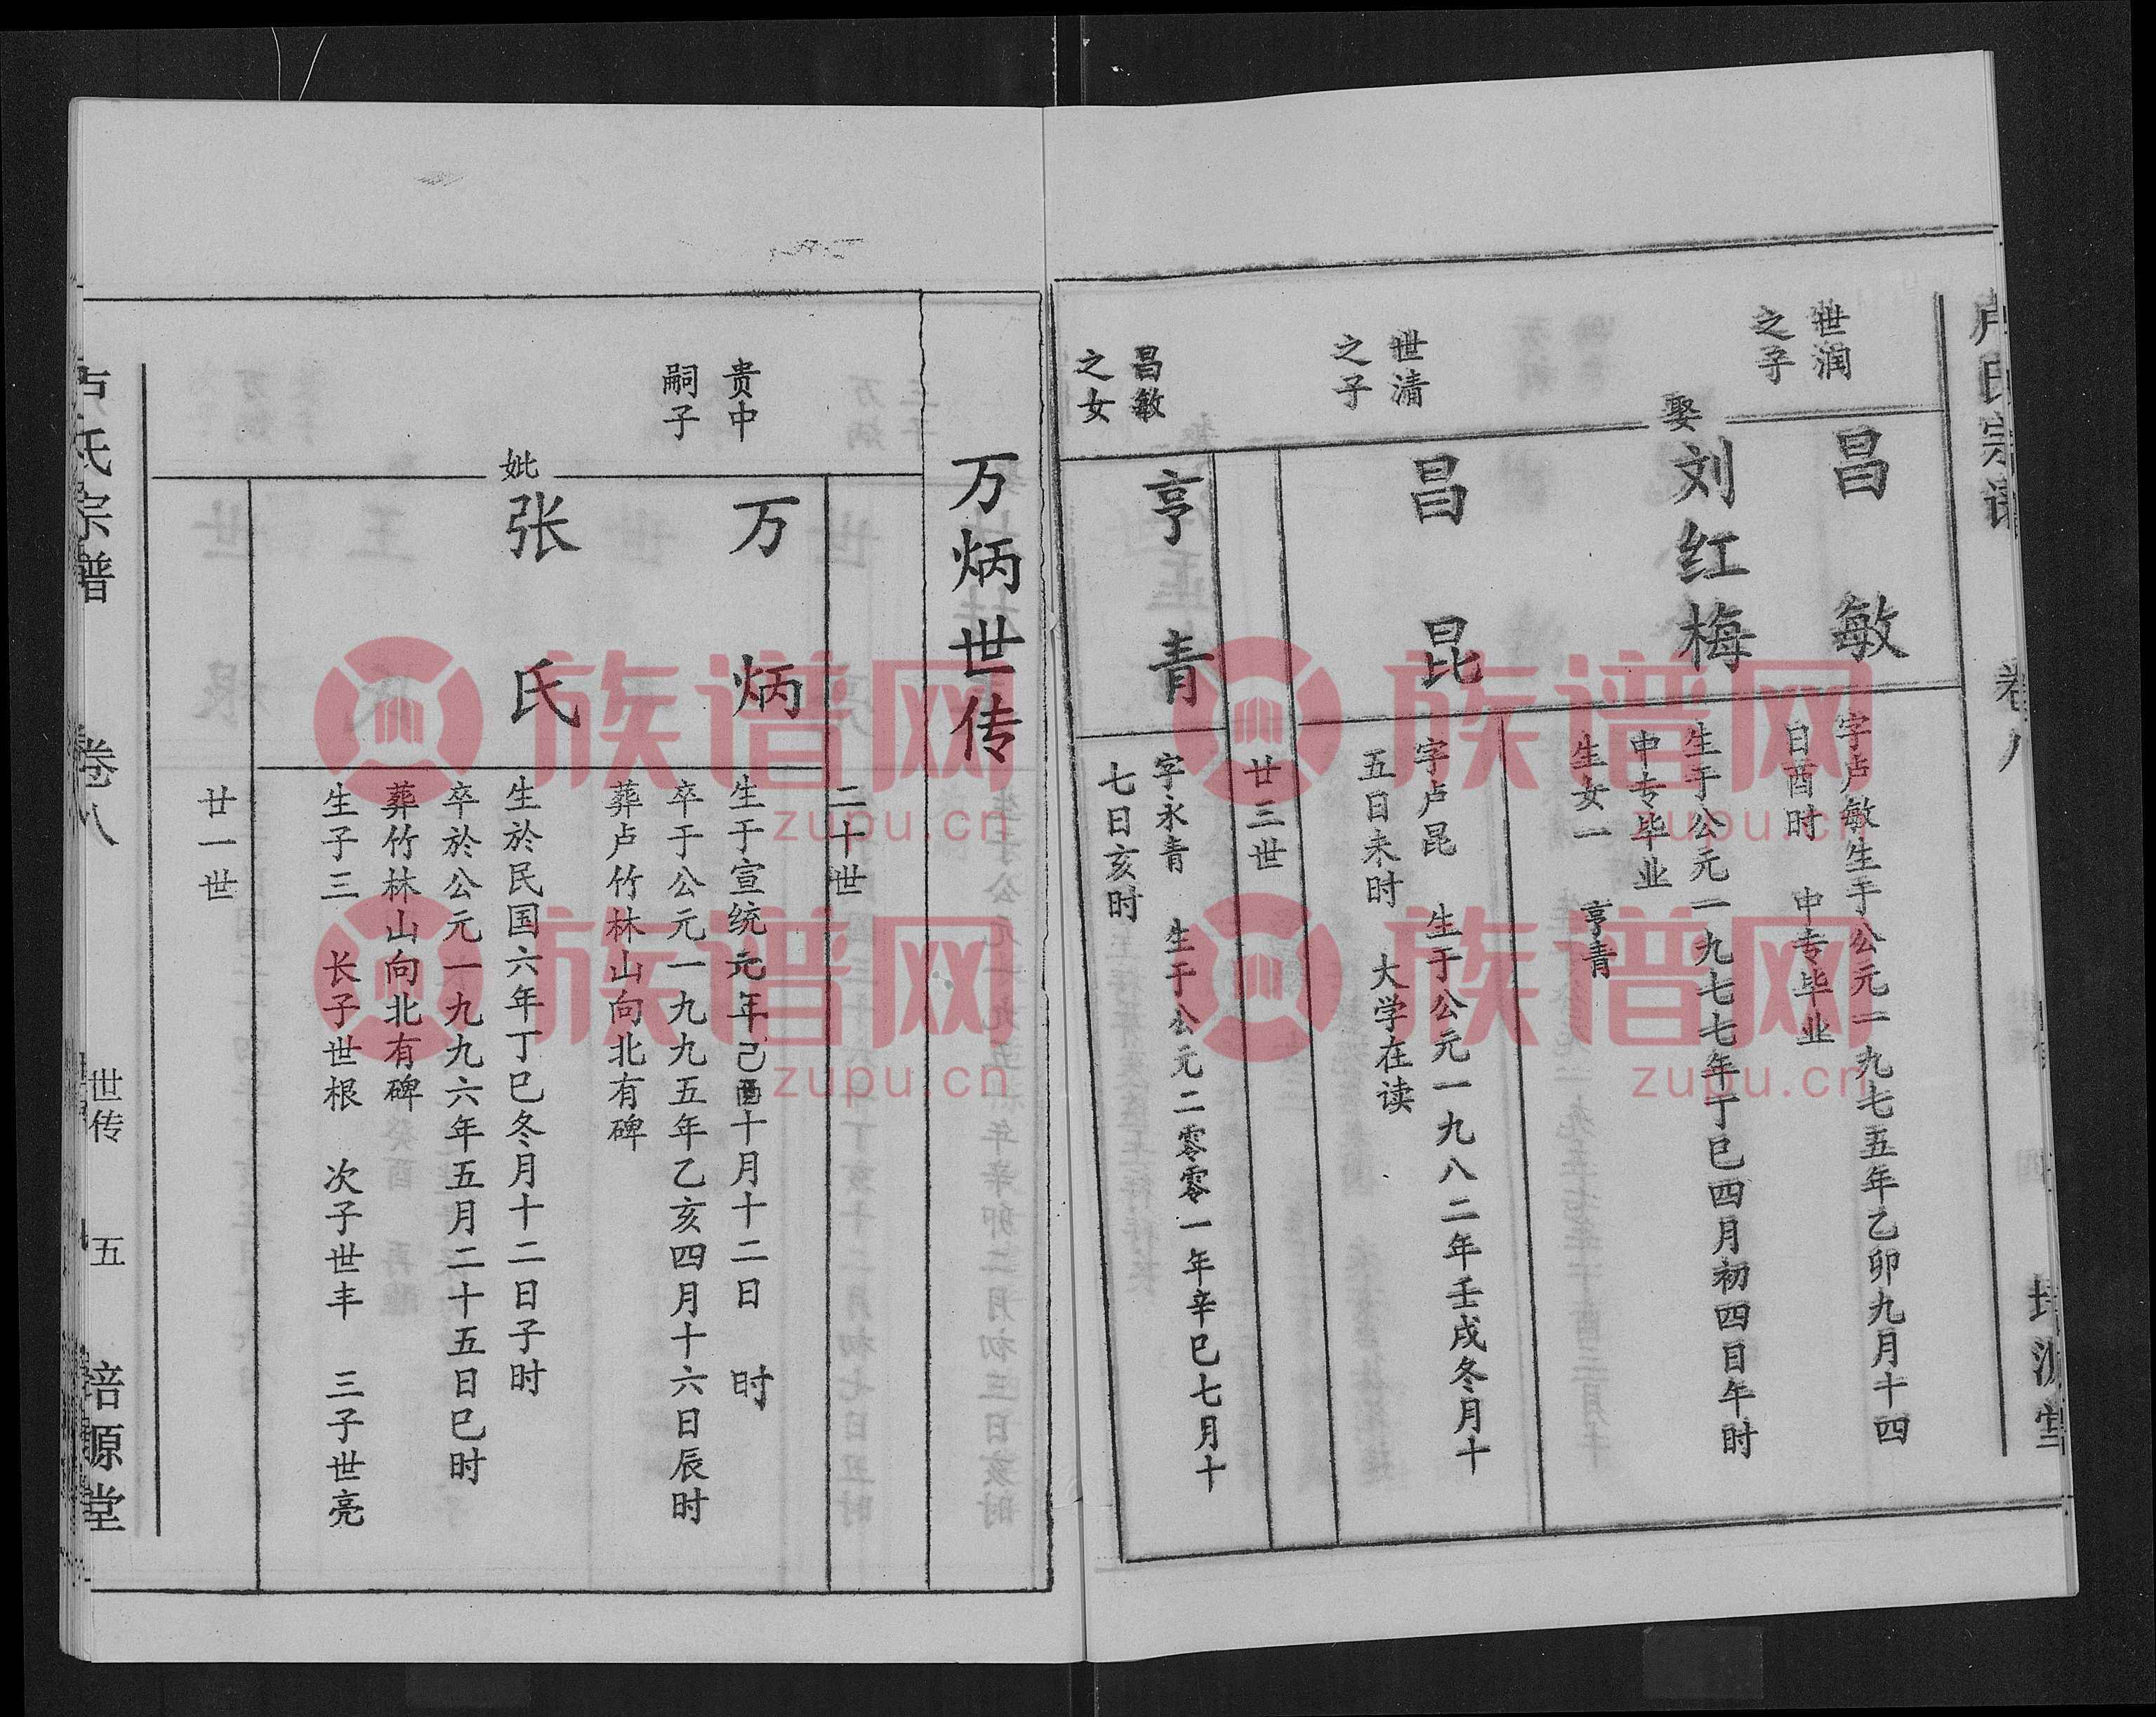 卢氏宗谱 卷八 培源堂
世润
之子
昌敏
字卢敏生于公元一九七五年乙卯九月十四
日酉时 中专毕业
娶
刘红梅
生于公元一九七七年丁巳四月初四日午时
中专毕业
生女一 亨青
世清
之子
昌昆
字卢昆 生于公元一九八二年壬戌冬月十
五日未时 大学在读
廿三世
昌敏
之女
亨青
字永青 生于公元二零零一年辛巳七月十
七日亥时
万炳世传
二十世
贵中
嗣子
万炳
生于宣统元年己酉十月十二日 时
卒于公元一九九五年乙亥四月十六日辰时
葬卢竹林山向北有碑
妣
张氏
生於民国六年丁巳冬月十二日子时
卒於公元一九九六年五月二十五日巳时
葬竹林山向北有碑
生子三 长子世根 次子世丰 三子世亮
廿一世
卢氏宗谱 卷八 世传 五 培源堂
族谱网
zupu.cn
族谱网
zupu.cn
族谱网
zupu.cn
族谱网
zupu.cn